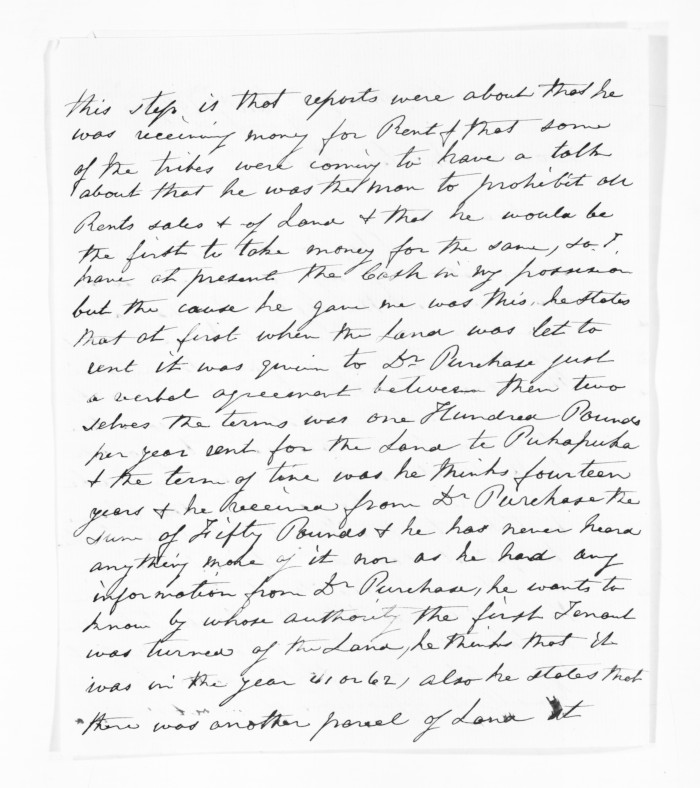 this step is that reports were about that he
was receiving money for Rent & that some
of the tribes were coming to have a talk
about that he was the man to prohibit all
Rents sales & of Land & that he would be
the first to take money for the same, so I,
have at present the Cash in my possesion
but the cause he gave me was this, he states
that at first when the Land was let to
rent it was given to Dr Purchase just
a verbal agreement between them two
selves the terms was one Hundred Pounds
per year rent for the Land te Pukapuka
& the term of time was he thinks fourteen
years & he received from Dr Purchase the
sum of Fifty Pounds & he has never heard
anything more of it nor as he had any
information from Dr Purchase, he wants to
know by whose authority the first Tenant
was turned of the Land, he thinks that it
was in the year 61 or 62, also he states that
there was another parcel of Land at